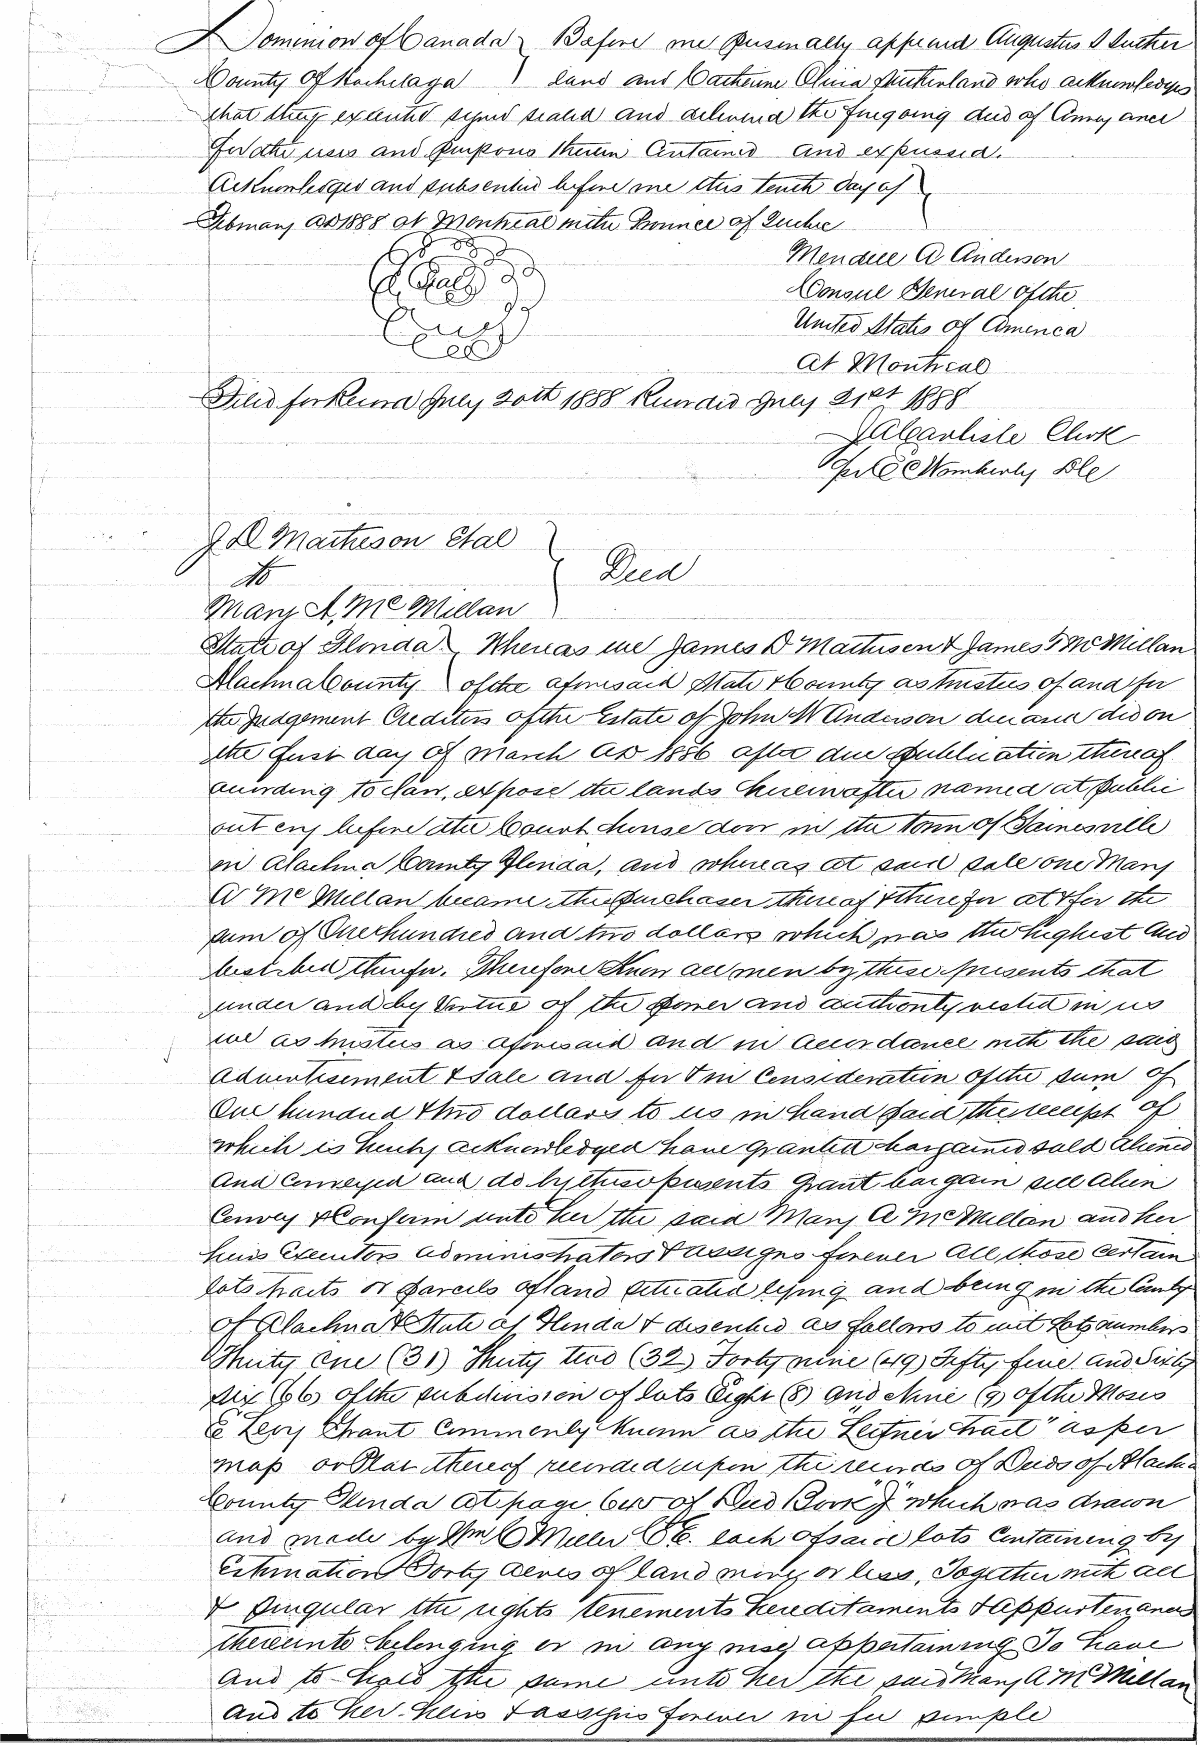 Dominion of Canada } Before me personally appeard Augustus S Suther
County of Hochelaga } land and Catherine Olivia Sutherland who acknowledges
that they executed signed sealed and delivered the foregoing deed of Convey ance
for the uses and purposes therein Contained and expressed.
Acknowledged and subscribed before me this tenth day of }
February AD 1888 at Montreal in the Province of Quebec
Mendell A Anderson
Consul General of the
United States of America
at Montreal
Seal
Filed for Record July 20th 1888 Recorded July 21st 1888
J A Carlisle Clerk
per C C Womberly D C
J D Matheson Etal }
to } Deed
Mary A, Mc Millan }
State of Florida } Whereas we James D Matheson & James T McMillan
Alachua County } of the aforesaid State & County as trustees of and for
the Judgement Creditors of the Estate of John W Anderson deceased did on
the first day of March AD 1886 after due publication thereof
according to law, expose the lands hereinafter named at public
out cry before the Court house door in the town of Gainesville
in Alachua County Florida, and whereas at said sale one Mary
A McMillan became the purchaser thereof & therefor at & for the
sum of One hundred and two dollars which was the highest and
best bid therefor. Therefore Know all men by these presents that
under and by Virtue of the power and authority vested in us
we as trustees as aforesaid and in accordance with the said
advertisement & sale and for & in Consideration of the sum of
One hundred & two dollars to us in hand paid the receipt of
which is hereby acknowledged have granted bargained sold aliened
and Conveyed and do by these presents grant bargain sell alien
Convey & Confirm unto her the said Mary A McMillan and her
heirs Executors administrators & assigns forever all those certain
lots tracts or parcels of land situated lying and being in the County
of Alachua & State of Florida & described as follows to wit Lots numbers
Thirty One (31) Thirty two (32) Forty nine (49) Fifty five and Sixty
six (66) of the subdivision of lots Eight (8) and Nine (9) of the Moses
E Levy Grant Commonly known as the "Leitner tract" as per
map or Plat thereof recorded upon the records of Deeds of Alachua
County Florida at page 600 of Deed Book "J" which was drawn
and made by Wm C Miller C E. each of said lots Containing by
Estimation Forty acres of land more or less, Together with all
& singular the rights tenements hereditaments & appurtenances
thereunto belonging or in any wise appertaining To have
and to hold the same unto her the said Mary A McMillan
and to her heirs & assigns forever in fee simple